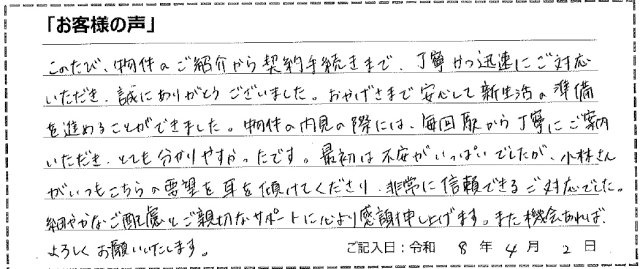 「お客様の声」
このたび、物件のご紹介から契約手続きまで、丁寧かつ迅速にご対応
いただき、誠にありがとうございました。おかげさまで安心して新生活の準備
を進めることができました。物件の内見の際には、毎回駅から丁寧にご案内
いただき、とても分かりやすかったです。最初は不安がいっぱいでしたが、小林さん
がいつもこちらの要望を耳を傾けてくださり、非常に信頼できるご対応でした。
細やかなご配慮とご親切なサポートに心より感謝申し上げます。また機会あれば、
よろしくお願いいたします。
ご記入日：令和 8 年 4 月 2 日